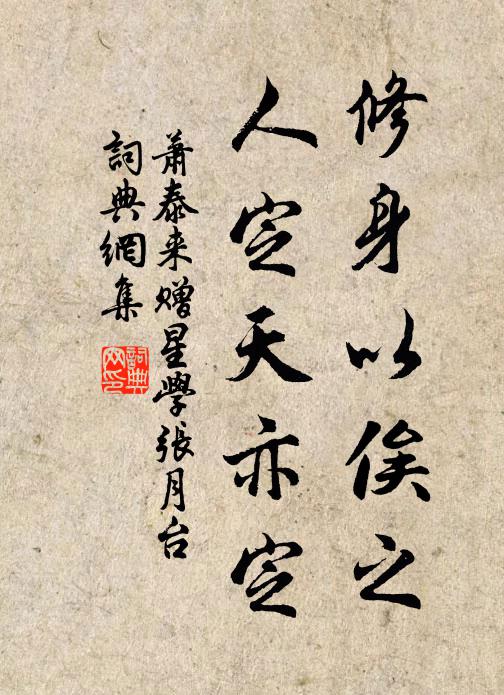 修身以俟之
人定天亦定
蕭泰来贈星學張月台
詞典網集
詞典网印